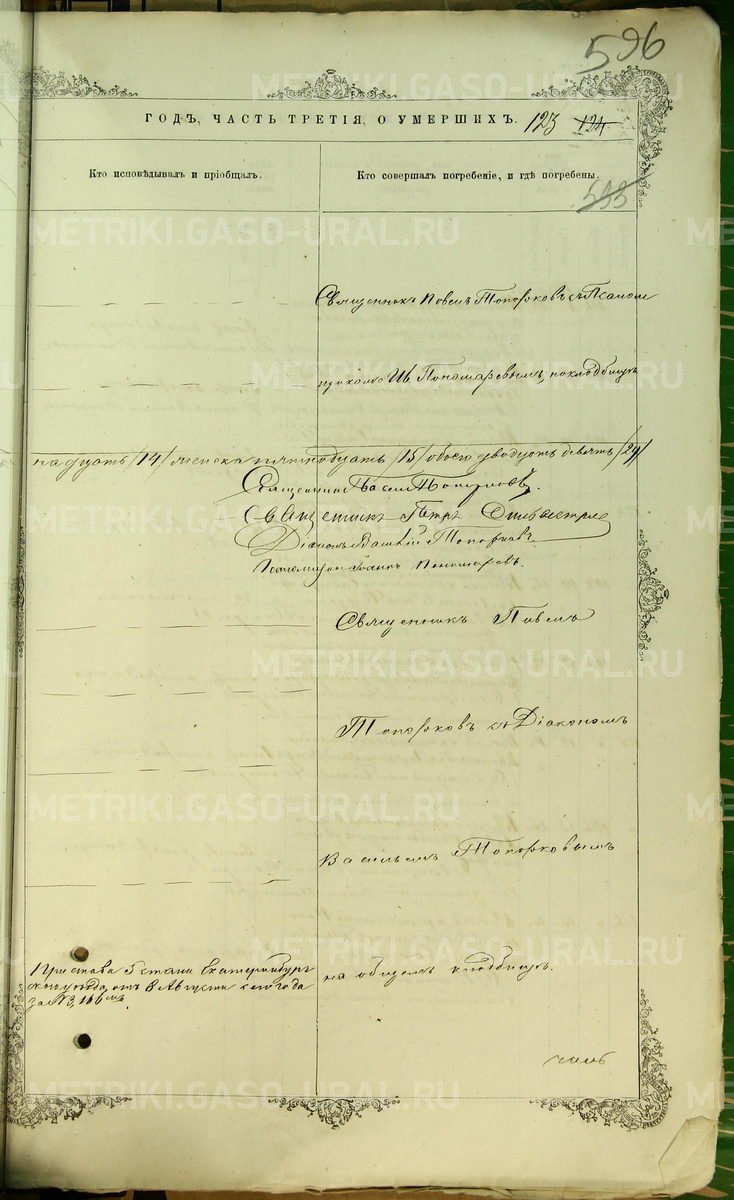 596
ГОДЪ, ЧАСТЬ ТРЕТІЯ, О УМЕРШИХЪ. 123 124
Кто исповѣдывалъ и пріобщалъ.
Кто совершалъ погребеніе, и гдѣ погребены.
533
Священникъ Павелъ Топорковъ съ Псалом
щикомъ Ив. Пономаревымъ, на кладбищѣ
надцать /14/ женска пятнадцать /15/ обоего двадцать девять /29/
Священникъ Павелъ Топорковъ.
Священникъ Петръ Сильвестровъ
Діаконъ Василій Топорковъ
Псаломщикъ Іоаннъ Пономаревъ.
Священникъ Павелъ
Топорковъ съ Діакономъ
Васильемъ Топорковымъ
Пристава 5 стана Екатеринбург
скаго уѣзда, отъ 8 Августа сего года
за №
на общемъ кладбищѣ.
METRIKI.GASO-URAL.RU